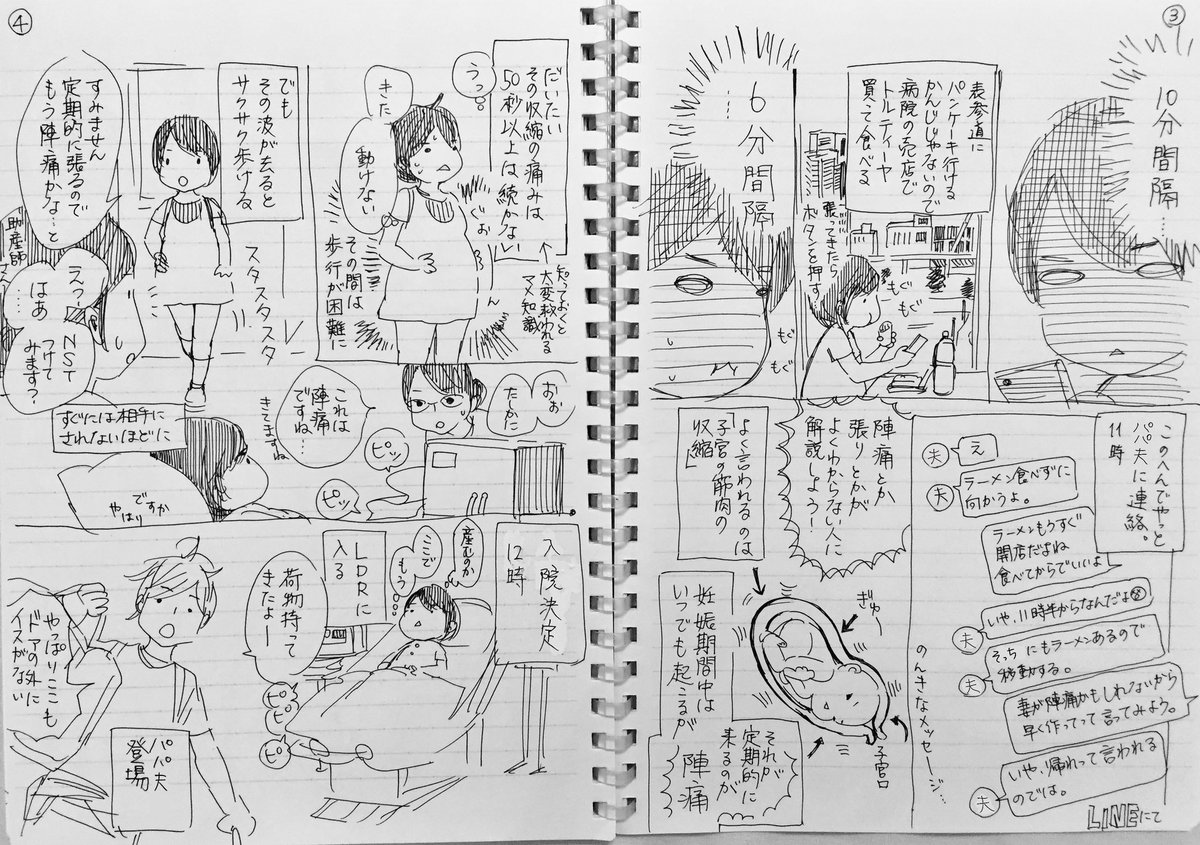 ③
10分間隔…
表参道に
パンケーキ行ける
かんじじゃないので
病院の売店で
トルティーヤ
買って食べる
張ってきたら
ボタンを押す
もぐ
もぐ
もぐ
もぐ
6分間隔
…
このへんでやっと
パパ夫に連絡。
11時
夫
え
夫
ラーメン食べずに
向かうよ。
ラーメンもうすぐ
開店だよね
食べてからでいいよ
夫
いや、11時半からなんだよ
夫
そっちにもラーメンあるので
移動する。
妻が陣痛かもしれないから
早く作ってって言ってみよう。
夫
いや、帰れって言われる
のでは。
LINEにて
のんきなメッセージ…
陣痛とか
張りとかが
よくわからない人に
解説しよう！
よく言われるのは
「子宮の筋肉の
収縮」
ぎゅー
子宮口
妊娠期間中は
いつでも起こるが
それが
定期的に
来るのが
陣痛
④
だいたい
その収縮の痛みは
50秒以上は続かない
↑知っておくと
大変救われる
マメ知識
うっ
きた
動けない
ぐぉ
その間は
歩行が困難に
でも
その波が去ると
サクサク歩ける
スタスタスタ
すみません
定期的に張るので
もう陣痛かな…と
助産師
えっ
はあ
…
NST
つけて
みます？
おぉ
たしかに
これは
陣痛
ですね…
きてますね
ピッ
ピッ
すぐには相手に
されないほどに
ですか
やはり
入院決定
12時
LDRに
入る
産むのか
ここで
もう
荷物持って
きたよー
ピ
ピ
ピ
やっぱりここも
ドアの外に
イスがない
パパ夫
登場